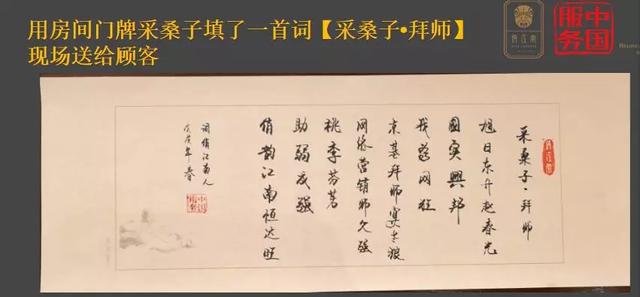 用房间门牌采桑子填了一首词【采桑子•拜师】
现场送给顾客
俏江南
中国
服务
采桑子·拜师
旭日东升赵春光
國实興邦
网狂
京基拜师宴
网络营销师久强
桃李芬芳
助弱强
俏韵江南恒达旺
词俏江南人
年春
中国
服务